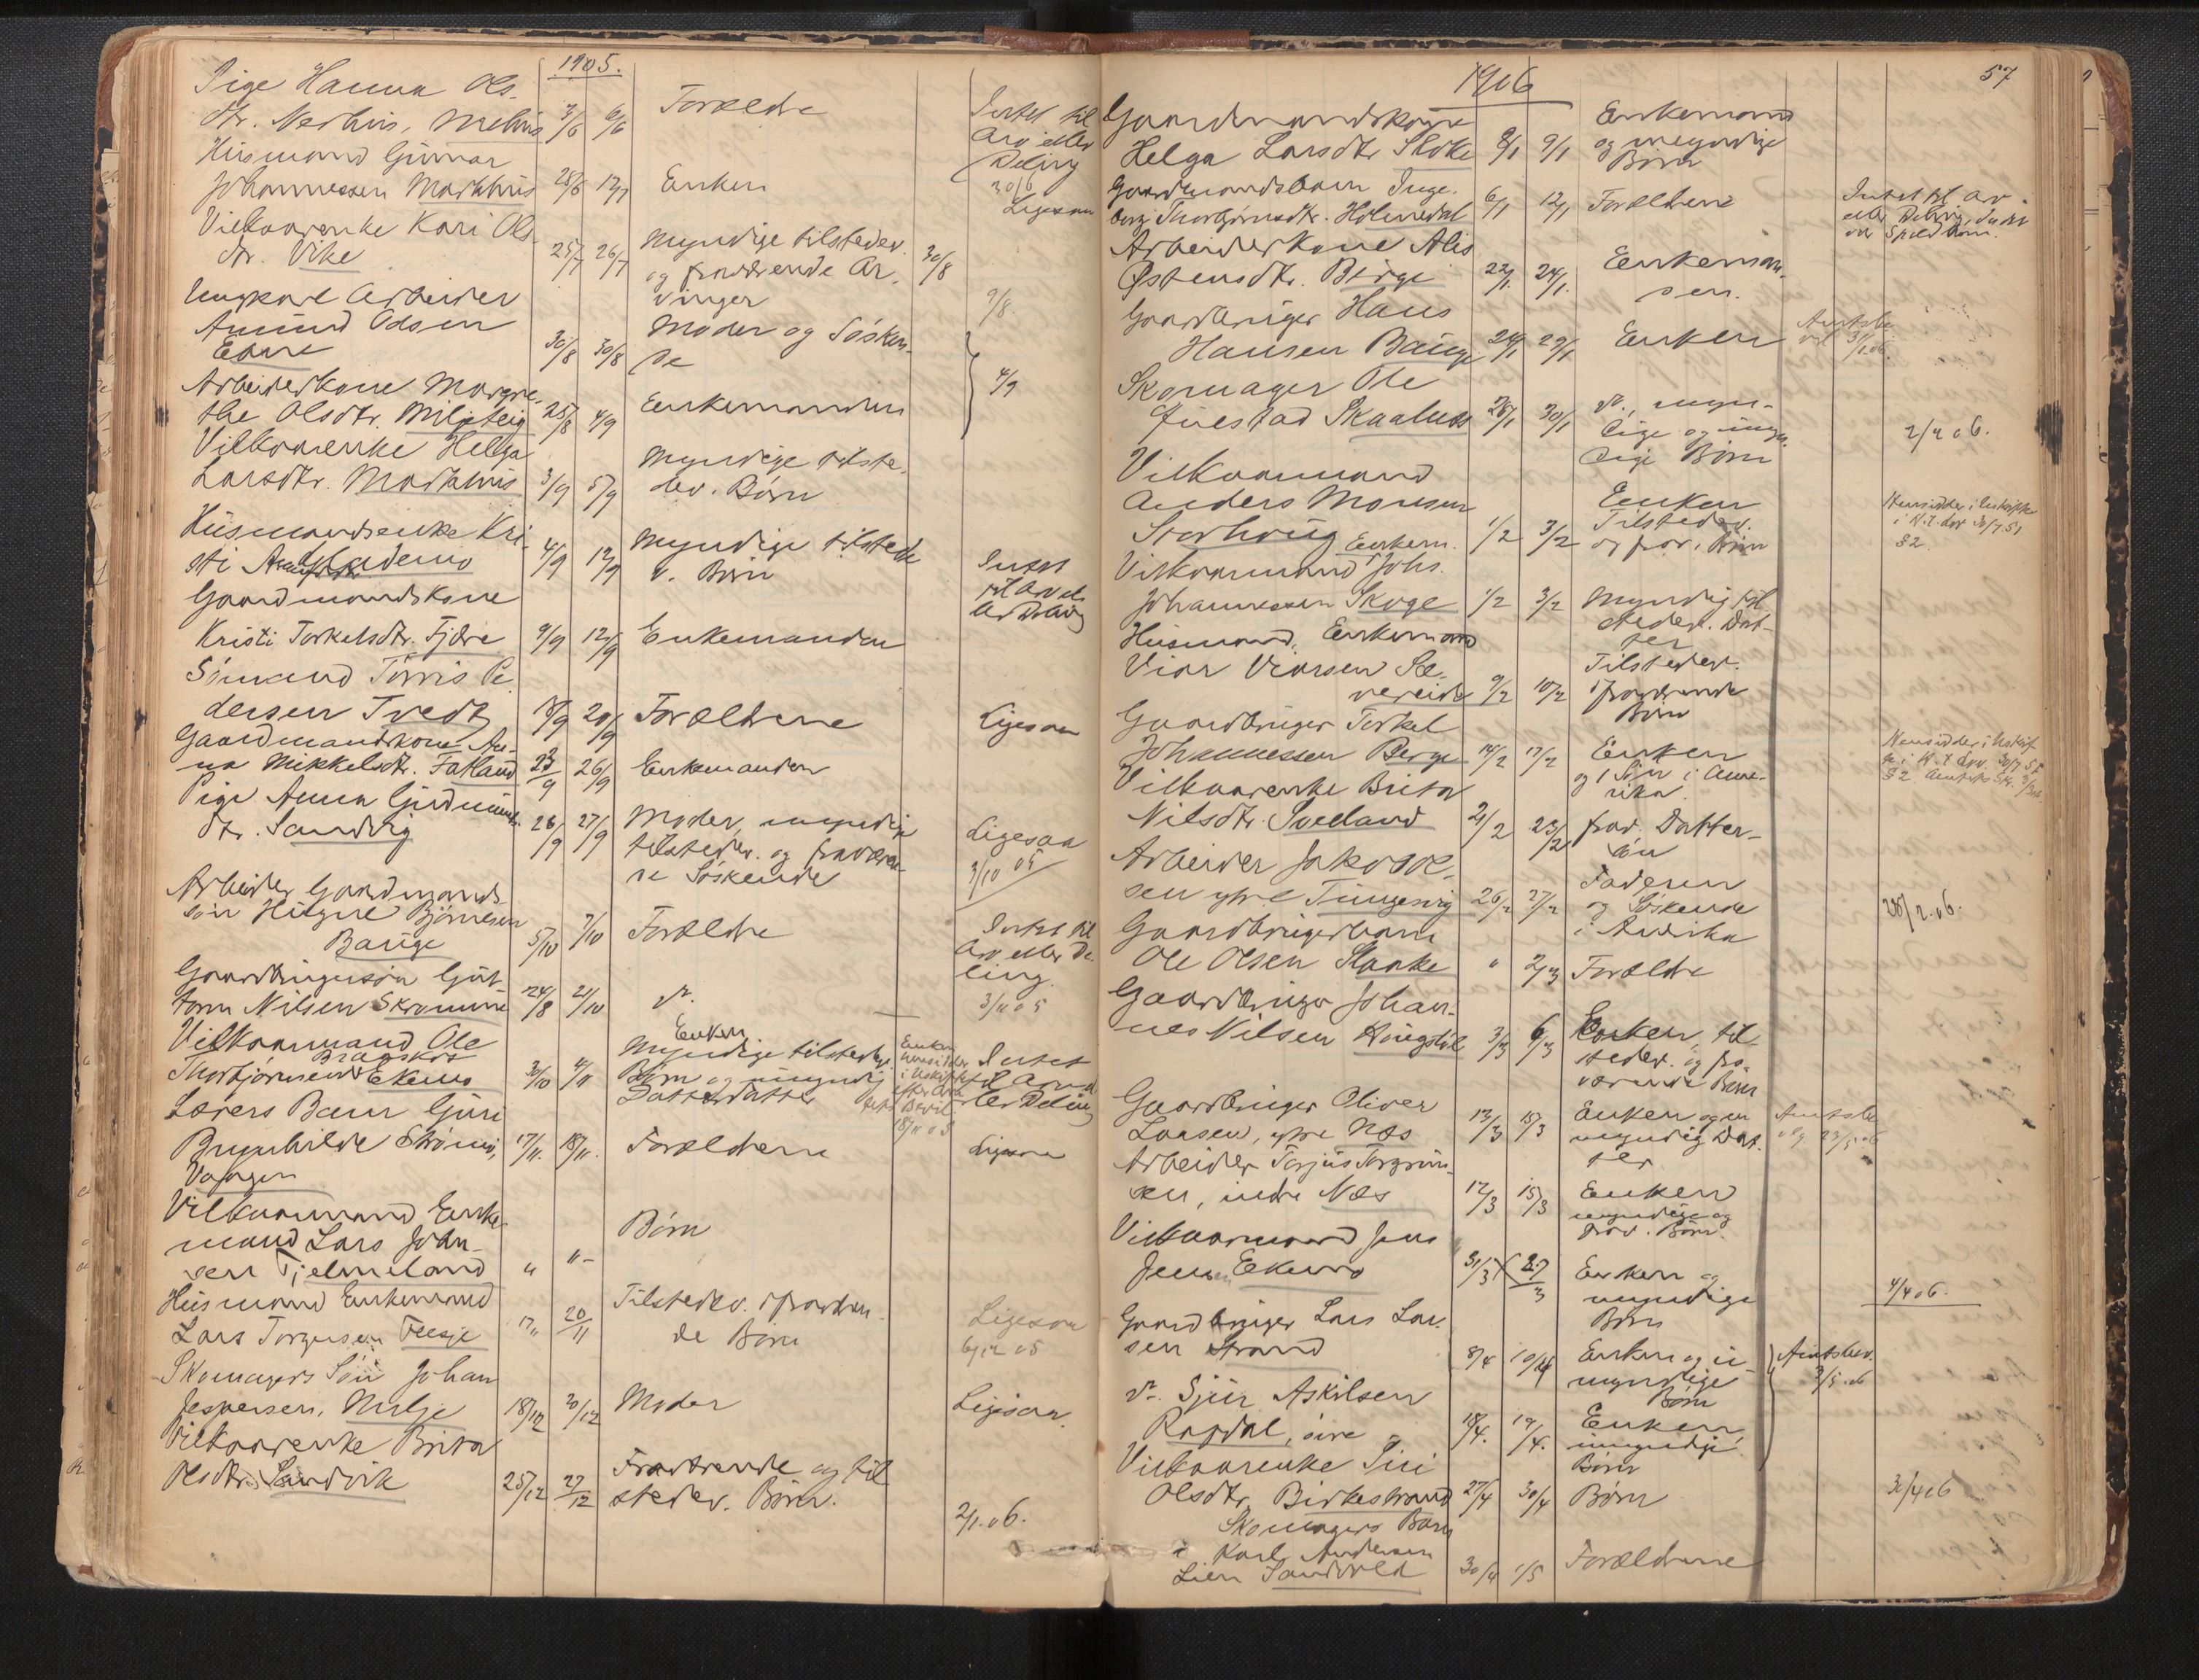 1905.
Pige Hanna Ols-
dtr. Nerhus, Melhus 3/6 6/6 Forældre Intet til
Arv eller
Deling
30/6
Husmand Gunnar
Johannessen Markhus 25/6 12/7 Enken Ligesaa
Vilkaarenke Kari Ols-
dtr. Vike 25/7 26/7 Myndige tilstedev. 30/8
og fraværende Ar-
vinger 9/8.
Ungkarl Arbeider
Amund Odsen
Ebne 30/8 30/8 Moder og Søsken-
de
Arbeiderkone Margre-
the Olsdtr. Milsteig 25/8 4/9 Enkemanden 4/9
Vilkaarenke Helga
Larsdtr. Markhus 3/9 5/9 Myndige tilste-
dev. Børn
Husmandsenke Kri-
sti Flademo 4/9 12/9 Myndige tilstede
v. Børn Intet
til Arv el-
ler Deling
Gaardmandskone
Kristi Torkelsdtr. Fjære 9/9 12/9 Enkemanden
Sømand Tørris Pe-
dersen Tvedt 18/9 20/9 Forældrene Ligesaa
Gaardmandskone An-
na Mikkelsdtr. Fatland 23/9 26/9 Enkemanden
Pige Anna Gudmunds-
dtr. Sandvig 26/9 27/9 Moder, myndige
tilstedev. og fraværen-
de Søskende Ligesaa
3/10 05
Arbeider Gaardmands-
søn Magne Bjørnesen
Bauge 5/10 7/10 Forældre Intet til
Arv eller De-
ling.
Gaardbrugersøn Gut-
torm Nilsen Skromme 24/8 21/10 do. 3/11 05
Vilkaarmand Ole
Thorbjørnsen Ekemo 3/10 4/11 Enken
Myndige tilstedev.
Børn og umyndig
Datterdatter
Enken
hensidder
i Uskifte
18/11 05
Intet
til Arv el
ler Deling
Lærers Barn Guri
Brynhilde Strømø,
Vaagen 17/11. 18/11. Forældrene Ligesaa
Vilkaarmand Enke-
mand Lars Johan-
sen Tjelmeland " "- Børn
Husmand Enkemand
Lars Torgersen Teesje 17/11 20/11 Tilstedev. & fraværen-
de Børn Ligesaa
6/12 05
Skomagers Søn Johan
Jespersen, Milje 18/12 20/12 Moder Ligesaa.
Vilkaarenke Brita
Olsdtr. Sandvik 25/12 27/12 Fraværende og til
stedev. Børn. 2/1.06.
1906
57
Gaardmandskone
Helga Larsdtr. Stoke 8/1 9/1 Enkemand
og myndige
Børn
Gaardmandsbarn Inge-
borg Thorbjørnsdtr. Holmedal 6/1 12/1 Forældrene Intet til Arv
eller Deling, da det
var Spædbarn.
Arbeiderkone Alis
Østensdtr. Berge 22/1. 24/1. Enkeman-
den.
Gaardbruger Hans
Hansen Bauge 24/1 29/1 Enken Amtsbe
vil 3/2.06.
Skomager Ole
Juestad Skaalnes 28/1 30/1 do., myn-
dige og umyn-
dige Børn 2/2 06.
Vilkaarmand
Anders Monsen
Storhoug Enkem. 1/2 3/2 Enken
Tilstedev.
og frav. Børn
Hensidder i Uskifte
i H. t. Lov 30/7 51
§ 2.
Vilkaarmand Johs.
Johannessen Skoge 1/2 3/2 Myndig til
stedev. Dat-
ter
Husmand, Enkemand
Viar Viarsen Sæ-
vereide 9/2 10/2 Tilstedev.
& fraværende
Børn
Gaardbruger Torkel
Johannessen Berge 14/2 17/2 Enken
og 1 Søn i Ame-
rika.
Hensidder i Uskif
te i H. t. Lov 30/7 51
§ 2.
Vilkaarenke Brita
Nilsdtr. Sveland 21/2 23/2 frav. Datter-
søn
Arbeider Jakob Ol-
sen ytre Tungesvig 26/2 27/2 Faderen
og Søskende
i Amerika 28/2.06.
Gaardbrugerbarn
Ole Olsen Staake " 2/3 Forældre
Gaardbruger Johan-
nes Nilsen Hougstøl 3/3 6/3 Enken, til
stedev. og fra-
værende Børn
Gaardbruger Oliver
Larsen, ytre Næs 13/3 15/3 Enken og en
myndig Dat-
ter
Arbeider Torjus Torgrim-
sen, indre Næs 12/3 15/3 Enken
myndige og
frav. Børn.
Vilkaarmand Jens
Jensen Ekemo 31/3 27/3 Enken og
myndige
Børn 4/4 06.
Gaardbruger Lars Lar-
sen Strand 8/4 10/4 Enken og u-
myndige
Børn Amtsbev.
3/5.06
do. Sjur Askilsen
Rafdal, øvre 18/4. 19/4. Enken
umyndige
Børn
Vilkaarenke Siri
Olsdtr. Birkestrand 27/4 30/4 Børn 30/4 06
Skomagers Barn
Karl Andersen
Lien Sandvold 30/4 1/5 Forældrene